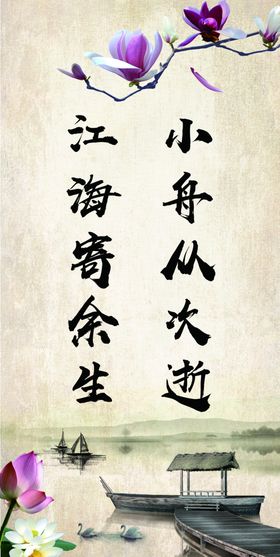 小舟从次逝
江海寄余生